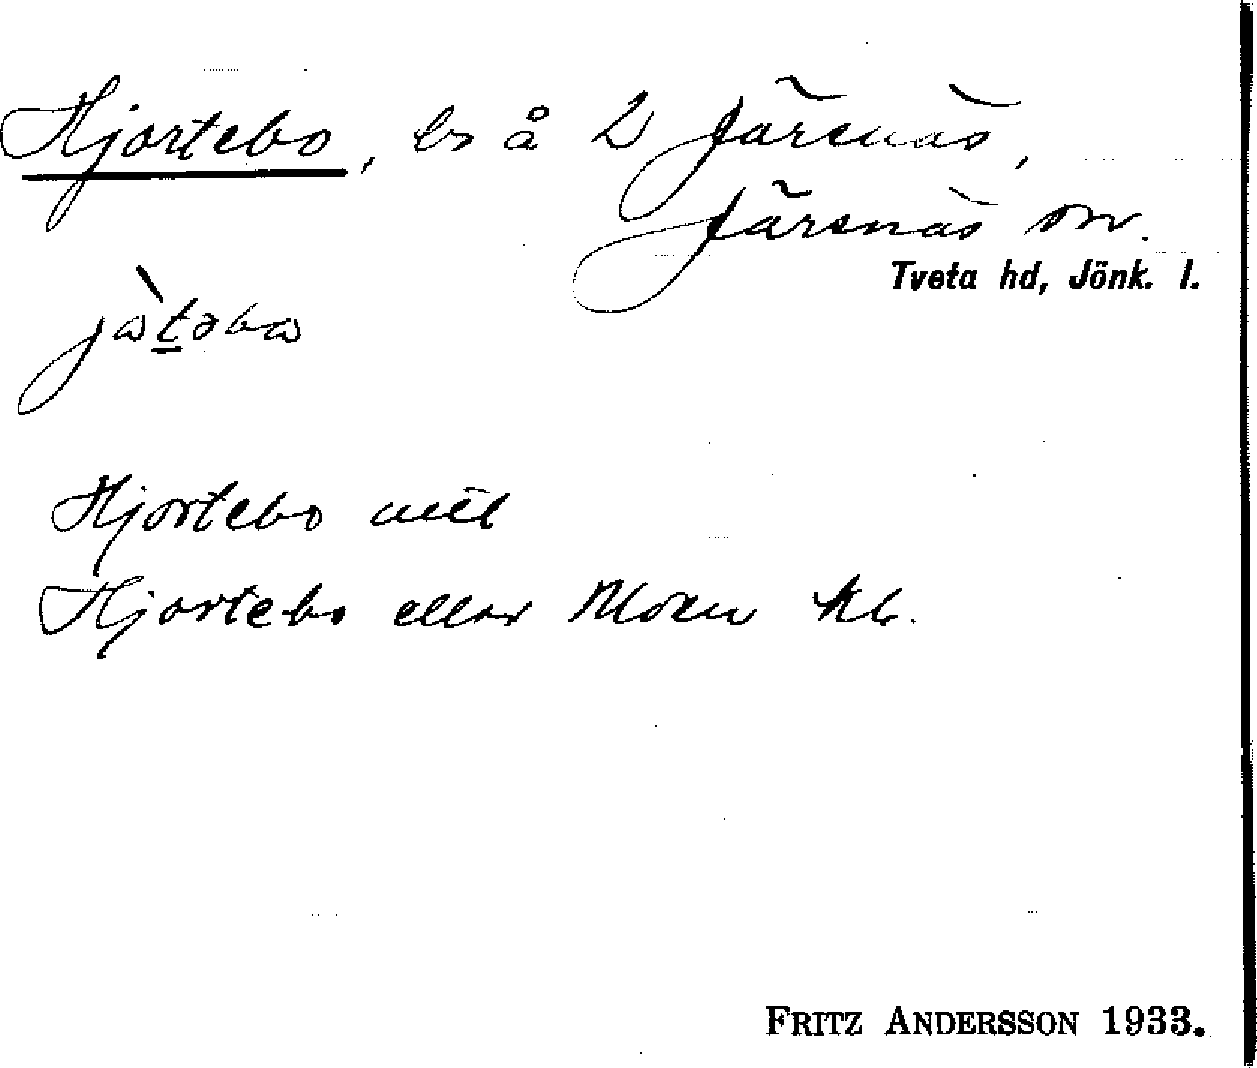 Hjortebo, ls å 2 Järsnäs,
Järsnäs sn.
Tveta hd, Jönk. l.
Hjortebo
Hjortebo eller Moen
FRITZ ANDERSSON 1933.